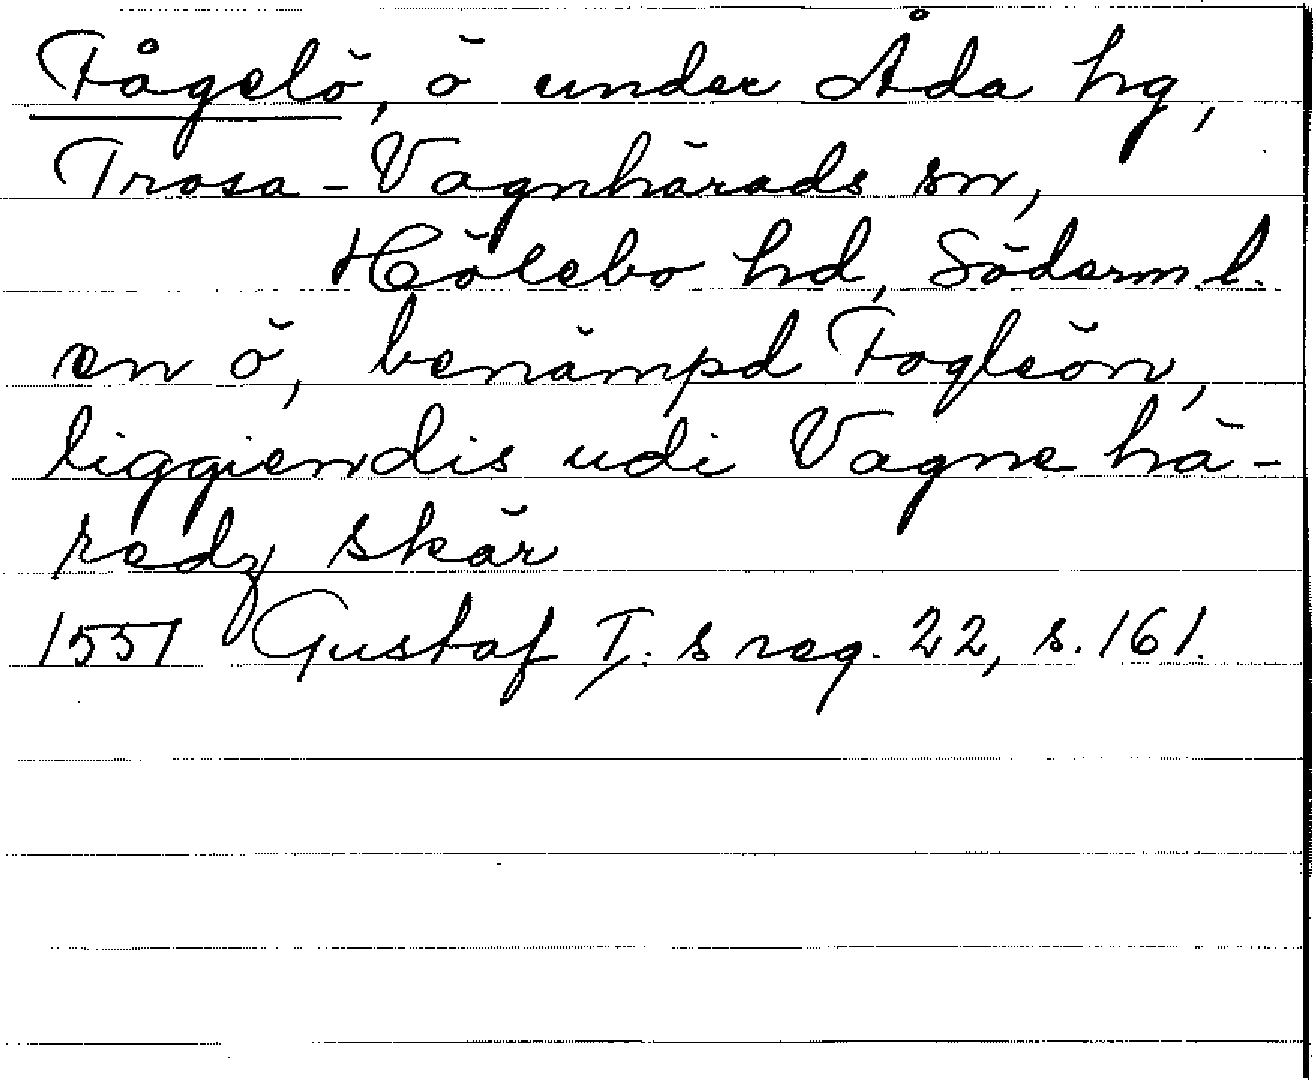 Fågelö, ö under Åda hg,
Trosa-Vagnhärads sn,
Hölebo hd, Söderm l.
en ö, benämpd Fogleön,
liggiendis udi Vagne hä-
redz skär
1551 Gustaf I:s reg. 22, s. 161.